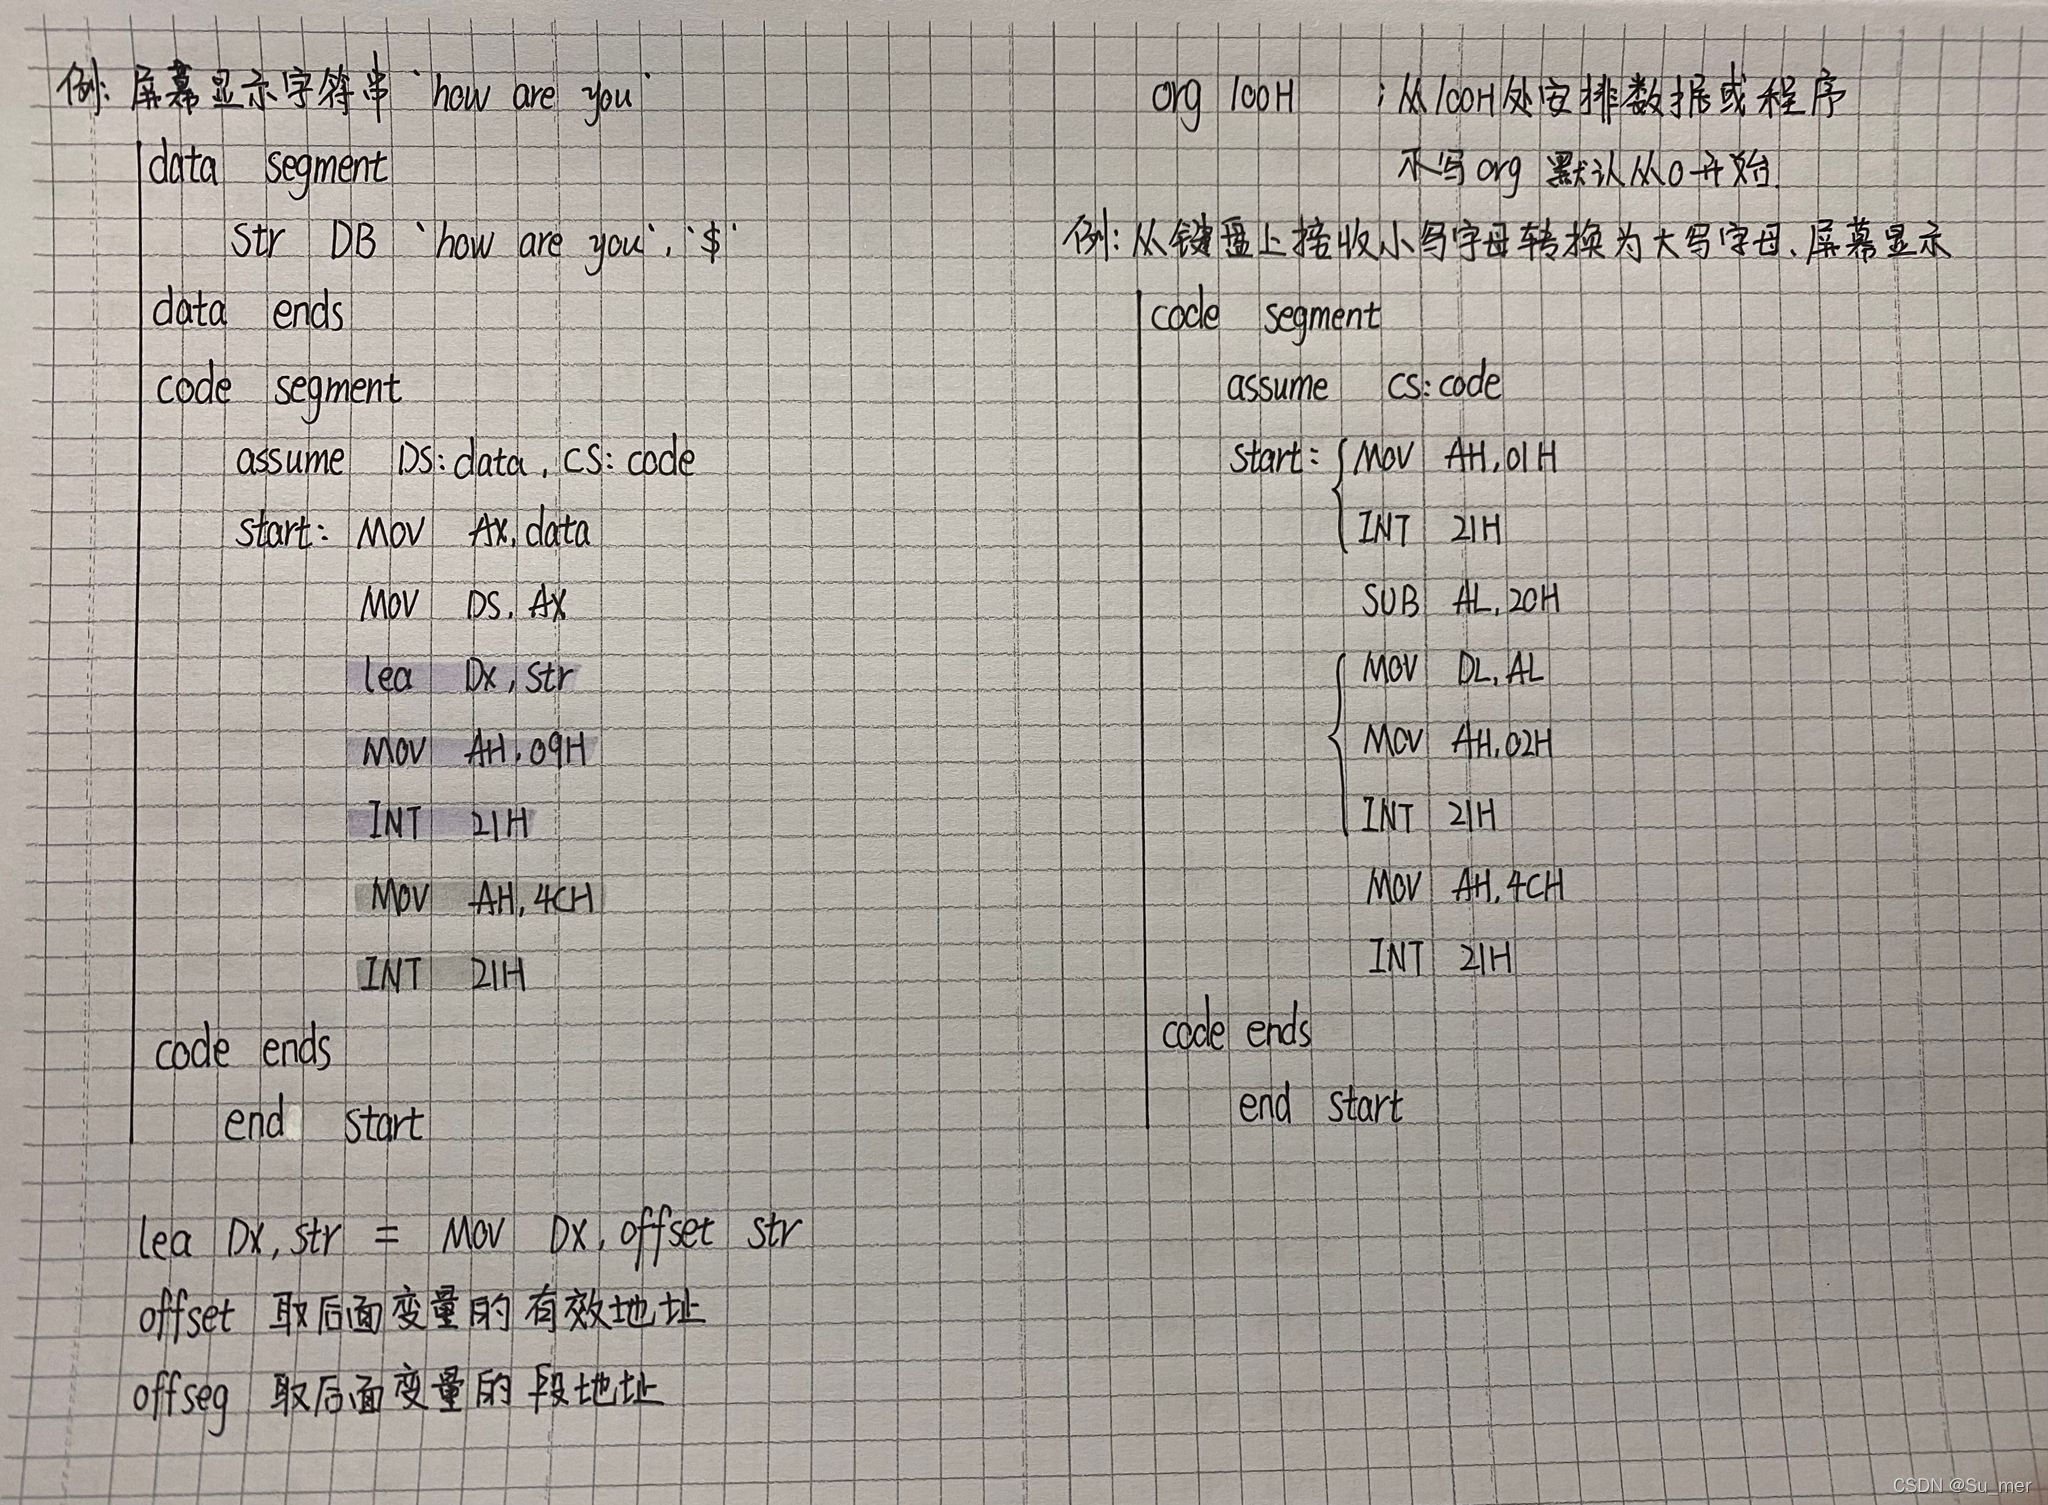 例: 屏幕显示字符串 `how are you`
data segment
str DB `how are you`, `$`
data ends
code segment
assume DS:data, CS:code
start: MOV AX, data
MOV DS, AX
lea DX, str
MOV AH, 09H
INT 21H
MOV AH, 4CH
INT 21H
code ends
end start
lea DX, str = MOV DX, offset str
offset 取后面变量的有效地址
offseg 取后面变量的段地址
org 100H ;从100H处安排数据或程序
不写org 默认从0开始.
例: 从键盘上接收小写字母转换为大写字母、屏幕显示
code segment
assume CS:code
start: MOV AH, 01H
INT 21H
SUB AL, 20H
MOV DL, AL
MOV AH, 02H
INT 21H
MOV AH, 4CH
INT 21H
code ends
end start
CSDN @Su_mer